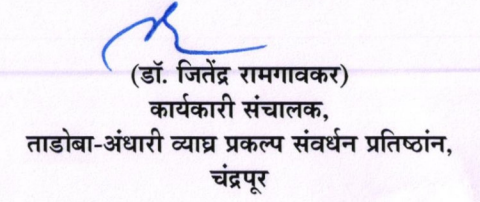 (डॉ. जितेंद्र रामगावकर)
कार्यकारी संचालक,
ताडोबा-अंधारी व्याघ्र प्रकल्प संवर्धन प्रतिष्ठांन,
चंद्रपूर